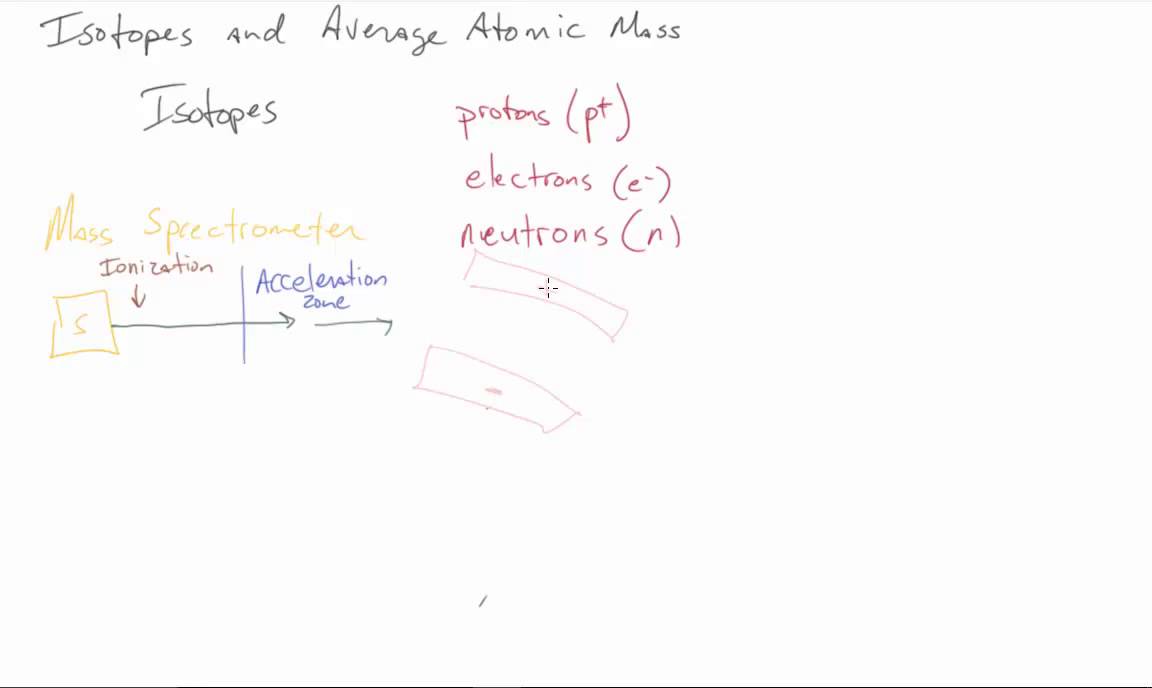 Isotopes and Average Atomic Mass
Isotopes
protons (p⁺)
electrons (e⁻)
neutrons (n)
Mass Sprectrometer
Ionization
Acceleration
zone
S
-